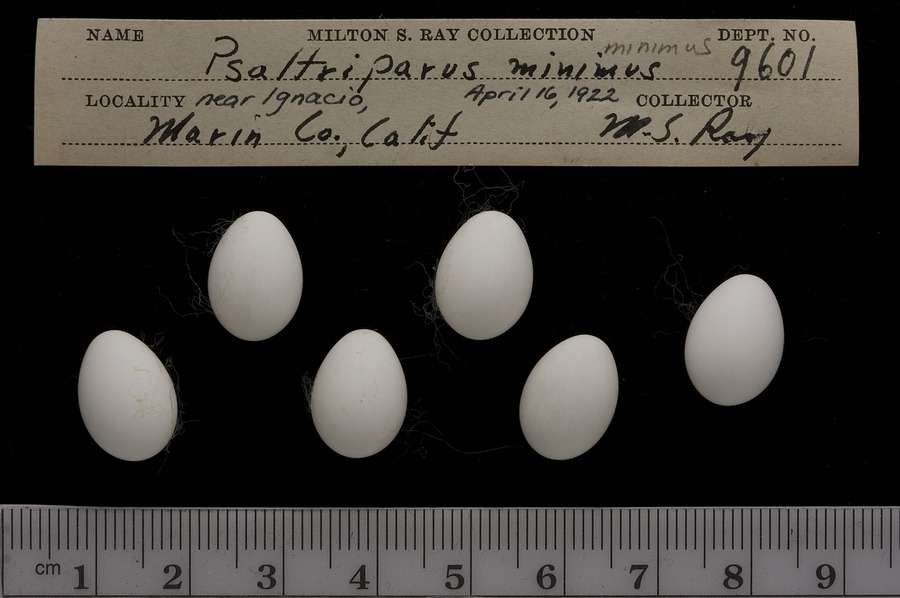 NAME MILTON S. RAY COLLECTION DEPT. NO.
Psaltriparus minimus minimus 9601
LOCALITY near Ignacio, April 16, 1922 COLLECTOR
Marin Co., Calif M. S. Ray
cm 1 2 3 4 5 6 7 8 9